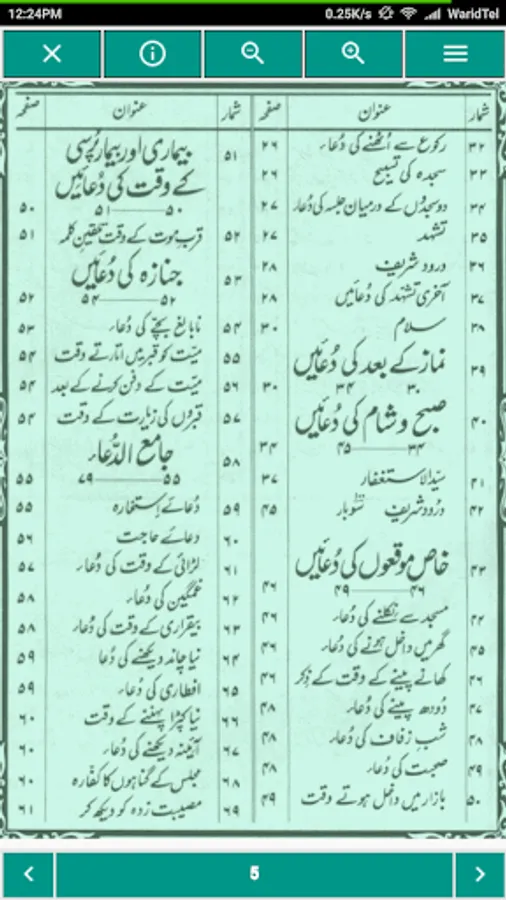 12:24PM 0.25K/s WaridTel
شمار عنوان صفحہ
۳۲ رکوع سے اُٹھنے کی دُعاء ۲۶
۳۳ سجدہ کی تسبیح ۲۶
۳۴ دو سجدُں کے درمیان جلسہ کی دُعاء ۲۷
۳۵ تشہد ۲۷
۳۶ درود شریف ۲۸
۳۷ آخری تشہد کی دُعائیں ۲۸
۳۸ سلام ۳۰
۳۹ نماز کے بعد کی دُعائیں ۳۰
۳۰ ــــــ ۳۴
۴۰ صبح و شام کی دُعائیں ۳۴
۳۴ ــــــ ۴۵
۴۱ سیّد الاستغفار ۳۷
۴۲ درُود شریف سَوبار ۴۵
۴۳ خاص موقعوں کی دُعائیں ۴۶
۴۶ ــــــ ۴۹
۴۴ مسجد سے نکلنے کی دُعاء ۴۶
۴۵ گھر میں داخل ہونے کی دُعاء ۴۶
۴۶ کھانے پینے کے وقت کے ذِکر ۴۶
۴۷ دُودھ پینے کی دُعاء ۴۸
۴۸ شبِ زفاف کی دُعاء ۴۸
۴۹ صحبت کی دُعاء ۴۸
۵۰ بازار میں داخل ہوتے وقت ۴۹
شمار عنوان صفحہ
۵۱ بیماری اور بیمار پُرسی
کے وقت کی دُعائیں ۵۰
۵۰ ــــــ ۵۱
۵۲ قربِ موت کے وقت تلقینِ کلمہ ۵۱
۵۳ جنازہ کی دُعائیں ۵۲
۵۲ ــــــ ۵۴
۵۴ نابالغ بچّے کی دُعاء ۵۳
۵۵ میّت کو قبر میں اتارتے وقت ۵۴
۵۶ میّت کے دفن کرنے کے بعد ۵۴
۵۷ قبروُں کی زیارت کے وقت ۵۴
۵۸ جامع الدُّعاء ۵۵
۵۵ ــــــ ۷۹
۵۹ دُعائے اِستخارہ ۵۵
۶۰ دعائے حاجت ۵۶
۶۱ لڑائی کے وقت کی دُعاء ۵۷
۶۲ غمگین کی دُعاء ۵۸
۶۳ بیقراری کے وقت کی دُعاء ۵۸
۶۴ نیا چاند دیکھنے کی دُعا ۵۹
۶۵ افطاری کی دُعاء ۵۹
۶۶ نیا کپڑا پہننے کے وقت ۶۰
۶۷ آئینہ دیکھنے کی دُعاء ۶۰
۶۸ مجلس کے گناہوں کا کفّارہ ۶۰
۶۹ مصیبت زدہ کو دیکھ کر ۶۱
5